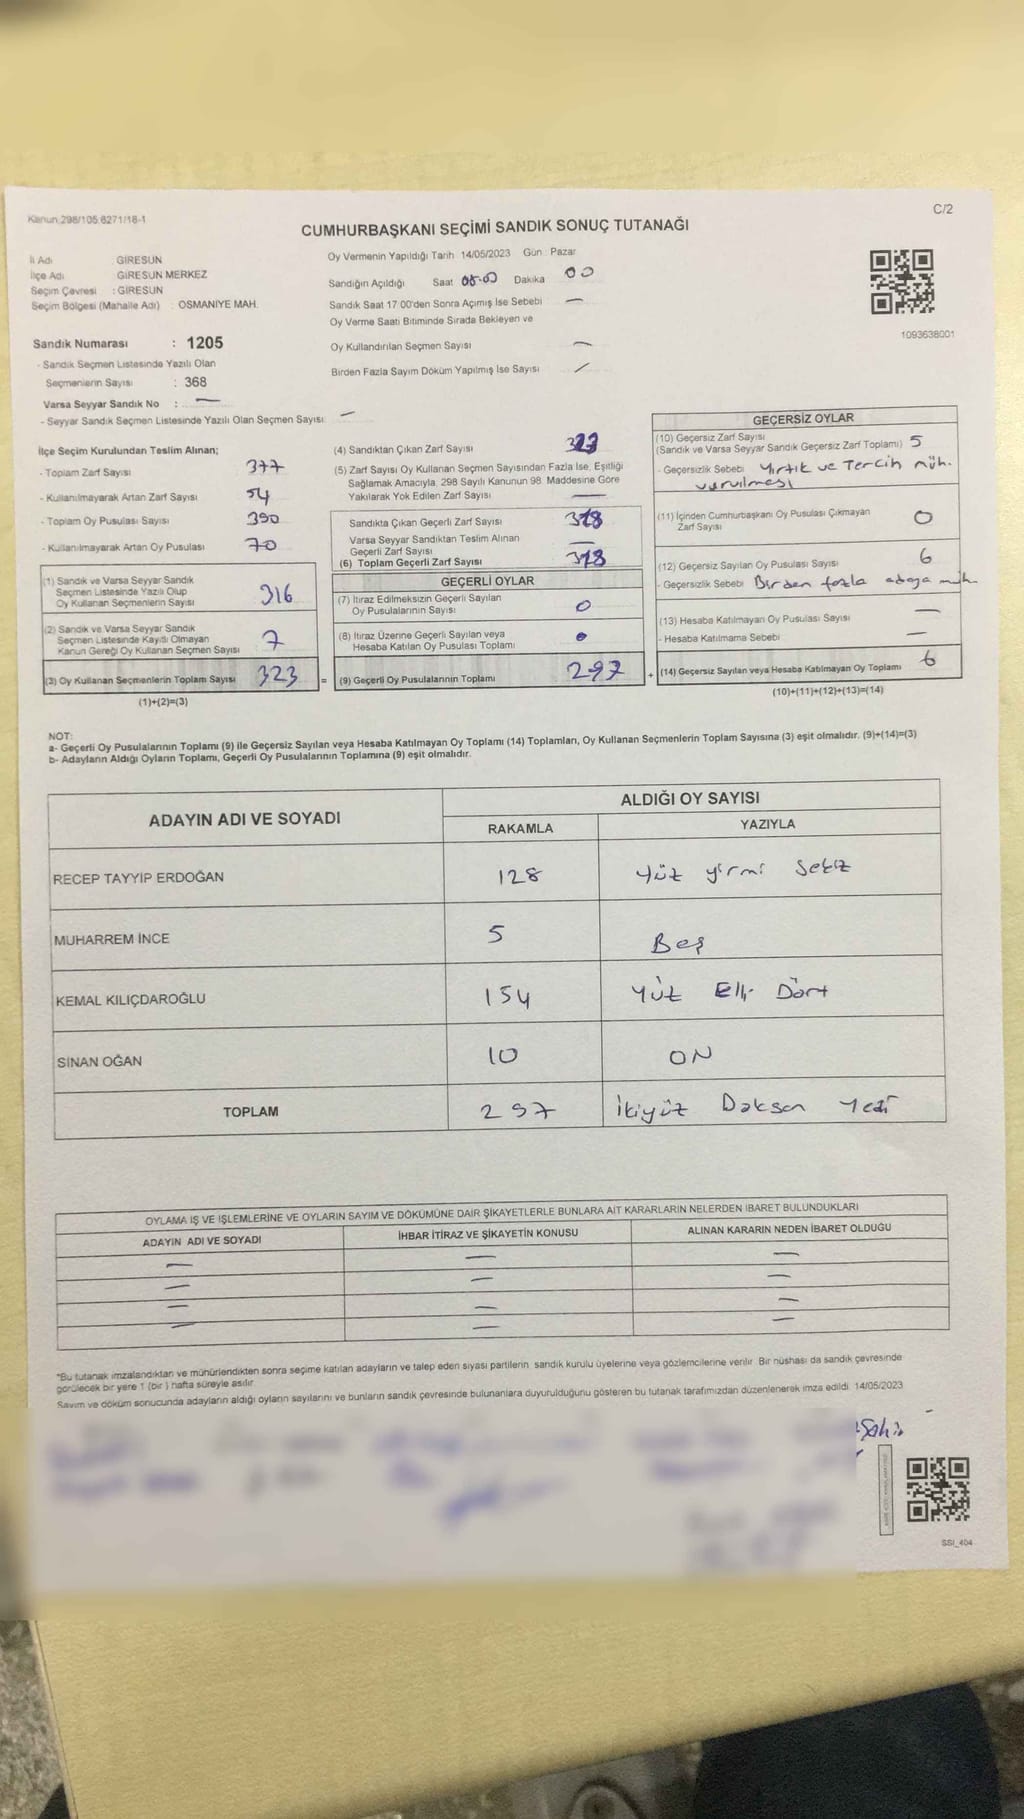 Kanun 298/105 6271/18-1
C/2
CUMHURBAŞKANI SEÇİMİ SANDIK SONUÇ TUTANAĞI
İl Adı GİRESUN
İlçe Adı GİRESUN MERKEZ
Seçim Çevresi : GİRESUN
Seçim Bölgesi (Mahalle Adı) OSMANİYE MAH.
Sandık Numarası : 1205
- Sandık Seçmen Listesinde Yazılı Olan
Seçmenlerin Sayısı : 368
Varsa Seyyar Sandık No : —
- Seyyar Sandık Seçmen Listesinde Yazılı Olan Seçmen Sayısı —
Oy Vermenin Yapıldığı Tarih 14/05/2023 Gün Pazar
Sandığın Açıldığı Saat Dakika 00
Sandık Saat 17:00'den Sonra Açımış İse Sebebi —
Oy Verme Saati Bitiminde Sırada Bekleyen ve
Oy Kullandırılan Seçmen Sayısı —
Birden Fazla Sayım Döküm Yapılmış İse Sayısı
1093638001
İlçe Seçim Kurulundan Teslim Alınan;
- Toplam Zarf Sayısı 377
- Kullanılmayarak Artan Zarf Sayısı 54
- Toplam Oy Pusulası Sayısı 390
- Kullanılmayarak Artan Oy Pusulası 70
(1) Sandık ve Varsa Seyyar Sandık
Seçmen Listesinde Yazılı Olup
Oy Kullanan Seçmenlerin Sayısı 316
(2) Sandık ve Varsa Seyyar Sandık
Seçmen Listesinde Kaydı Olmayan
Kanun Gereği Oy Kullanan Seçmen Sayısı 7
(3) Oy Kullanan Seçmenlerin Toplam Sayısı 323 =
(1)+(2)=(3)
(4) Sandıktan Çıkan Zarf Sayısı 323
(5) Zarf Sayısı Oy Kullanan Seçmen Sayısından Fazla İse, Eşitliği
Sağlamak Amacıyla, 298 Sayılı Kanunun 98. Maddesine Göre
Yakılarak Yok Edilen Zarf Sayısı —
Sandıkta Çıkan Geçerli Zarf Sayısı 318
Varsa Seyyar Sandıktan Teslim Alınan
Geçerli Zarf Sayısı —
(6) Toplam Geçerli Zarf Sayısı 318
GEÇERLİ OYLAR
(7) İtiraz Edilmeksizin Geçerli Sayılan
Oy Pusulalarının Sayısı 0
(8) İtiraz Üzerine Geçerli Sayılan veya
Hesaba Katılan Oy Pusulası Toplamı
(9) Geçerli Oy Pusulalarının Toplamı 297 +
GEÇERSİZ OYLAR
(10) Geçersiz Zarf Sayısı
(Sandık ve Varsa Seyyar Sandık Geçersiz Zarf Toplamı) 5
- Geçersizlik Sebebi Yırtık ve Tercih müh.
vurulması
(11) İçinden Cumhurbaşkanı Oy Pusulası Çıkmayan
Zarf Sayısı 0
(12) Geçersiz Sayılan Oy Pusulası Sayısı 6
- Geçersizlik Sebebi Birden fazla adaya müh.
(13) Hesaba Katılmayan Oy Pusulası Sayısı —
- Hesaba Katılmama Sebebi —
(14) Geçersiz Sayılan veya Hesaba Katılmayan Oy Toplamı 6
(10)+(11)+(12)+(13)=(14)
NOT:
a- Geçerli Oy Pusulalarının Toplamı (9) ile Geçersiz Sayılan veya Hesaba Katılmayan Oy Toplamı (14) Toplamları, Oy Kullanan Seçmenlerin Toplam Sayısına (3) eşit olmalıdır. (9)+(14)=(3)
b- Adayların Aldığı Oyların Toplamı, Geçerli Oy Pusulalarının Toplamına (9) eşit olmalıdır.
ADAYIN ADI VE SOYADI ALDIĞI OY SAYISI
RAKAMLA YAZIYLA
RECEP TAYYİP ERDOĞAN 128 Yüz yirmi Sekiz
MUHARREM İNCE 5 Beş
KEMAL KILIÇDAROĞLU 154 Yüz Elli Dört
SİNAN OĞAN 10 ON
TOPLAM 297 İkiyüz Doksan Yedi
OYLAMA İŞ VE İŞLEMLERİNE VE OYLARIN SAYIM VE DÖKÜMÜNE DAİR ŞİKAYETLERLE BUNLARA AİT KARARLARIN NELERDEN İBARET BULUNDUKLARI
ADAYIN ADI VE SOYADI İHBAR İTİRAZ VE ŞİKAYETİN KONUSU ALINAN KARARIN NEDEN İBARET OLDUĞU
— — —
— — —
— — —
— — —
*Bu tutanak imzalandıktan ve mühürlendikten sonra seçime katılan adayların ve talep eden siyasi partilerin sandık kurulu üyelerine veya gözlemcilerine verilir. Bir nüshası da sandık çevresinde
görülecek bir yere 1 (bir ) hafta süreyle asılır.
Sayım ve döküm sonucunda adayların aldığı oyların sayılarını ve bunların sandık çevresinde bulunanlara duyurulduğunu gösteren bu tutanak tarafımızdan düzenlenerek imza edildi. 14/05/2023
SSI_404